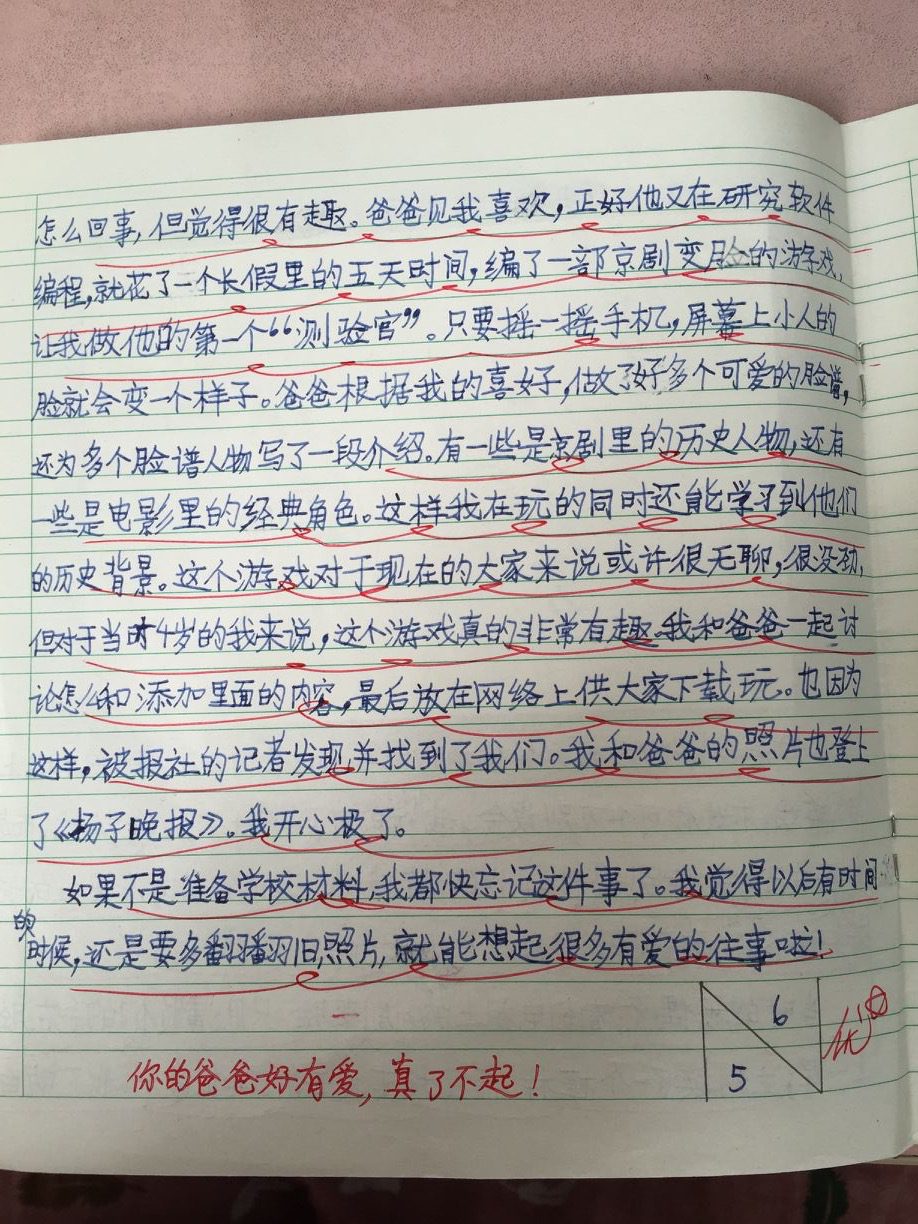 怎么回事，但觉得很有趣。爸爸见我喜欢，正好他又在研究软件
编程，就花了一个长假里的五天时间，编了一部京剧变脸的游戏，
让我做他的第一个“测验官”。只要摇一摇手机，屏幕上小人的
脸就会变一个样子。爸爸根据我的喜好，做了好多个可爱的脸谱，
还为多个脸谱人物写了一段介绍。有一些是京剧里的历史人物，还有
一些是电影里的经典角色。这样我在玩的同时还能学习到他们
的历史背景。这个游戏对于现在的大家来说或许很无聊，很没劲，
但对于当时4岁的我来说，这个游戏真的非常有趣。我和爸爸一起讨
论怎么和添加里面的内容，最后放在网络上供大家下载玩。也因为
这样，被报社的记者发现并找到了我们。我和爸爸的照片也登上
了《扬子晚报》。我开心极了。
如果不是准备学校材料，我都快忘记这件事了。我觉得以后有时间
的
时候，还是要多翻翻旧照片，就能想起很多有爱的往事啦！
6
5
优
你的爸爸好有爱，真了不起！